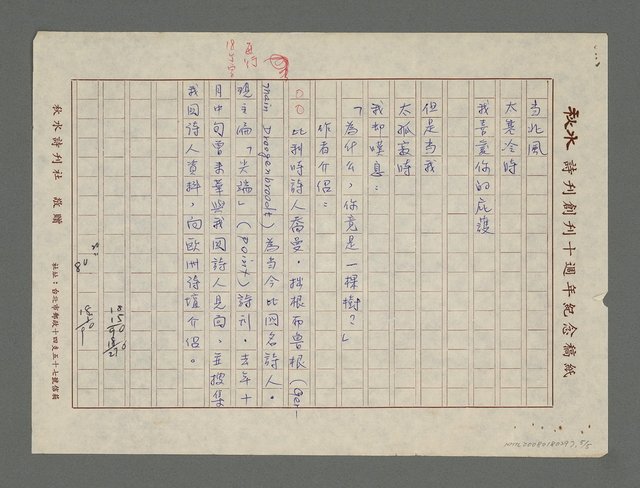 秋水 詩刊創刊十週年紀念稿紙
當北風
太寒冷時
我喜愛你的庇護
但是當我
太孤寂時
我却嘆息：
「為什么，你竟是一棵樹？」
作者介紹：
○○比利時詩人喬曼・拙根布魯根（Ger-
main Droogenbroodt）為當今比國名詩人。
現主編「尖端」（point）詩刊。去年十
月中旬曾來華與我國詩人見面，並搜集
我國詩人資料，向歐洲詩壇介紹。
秋水詩刊社 敬贈
社址：台北市郵政十四支五十七號信箱